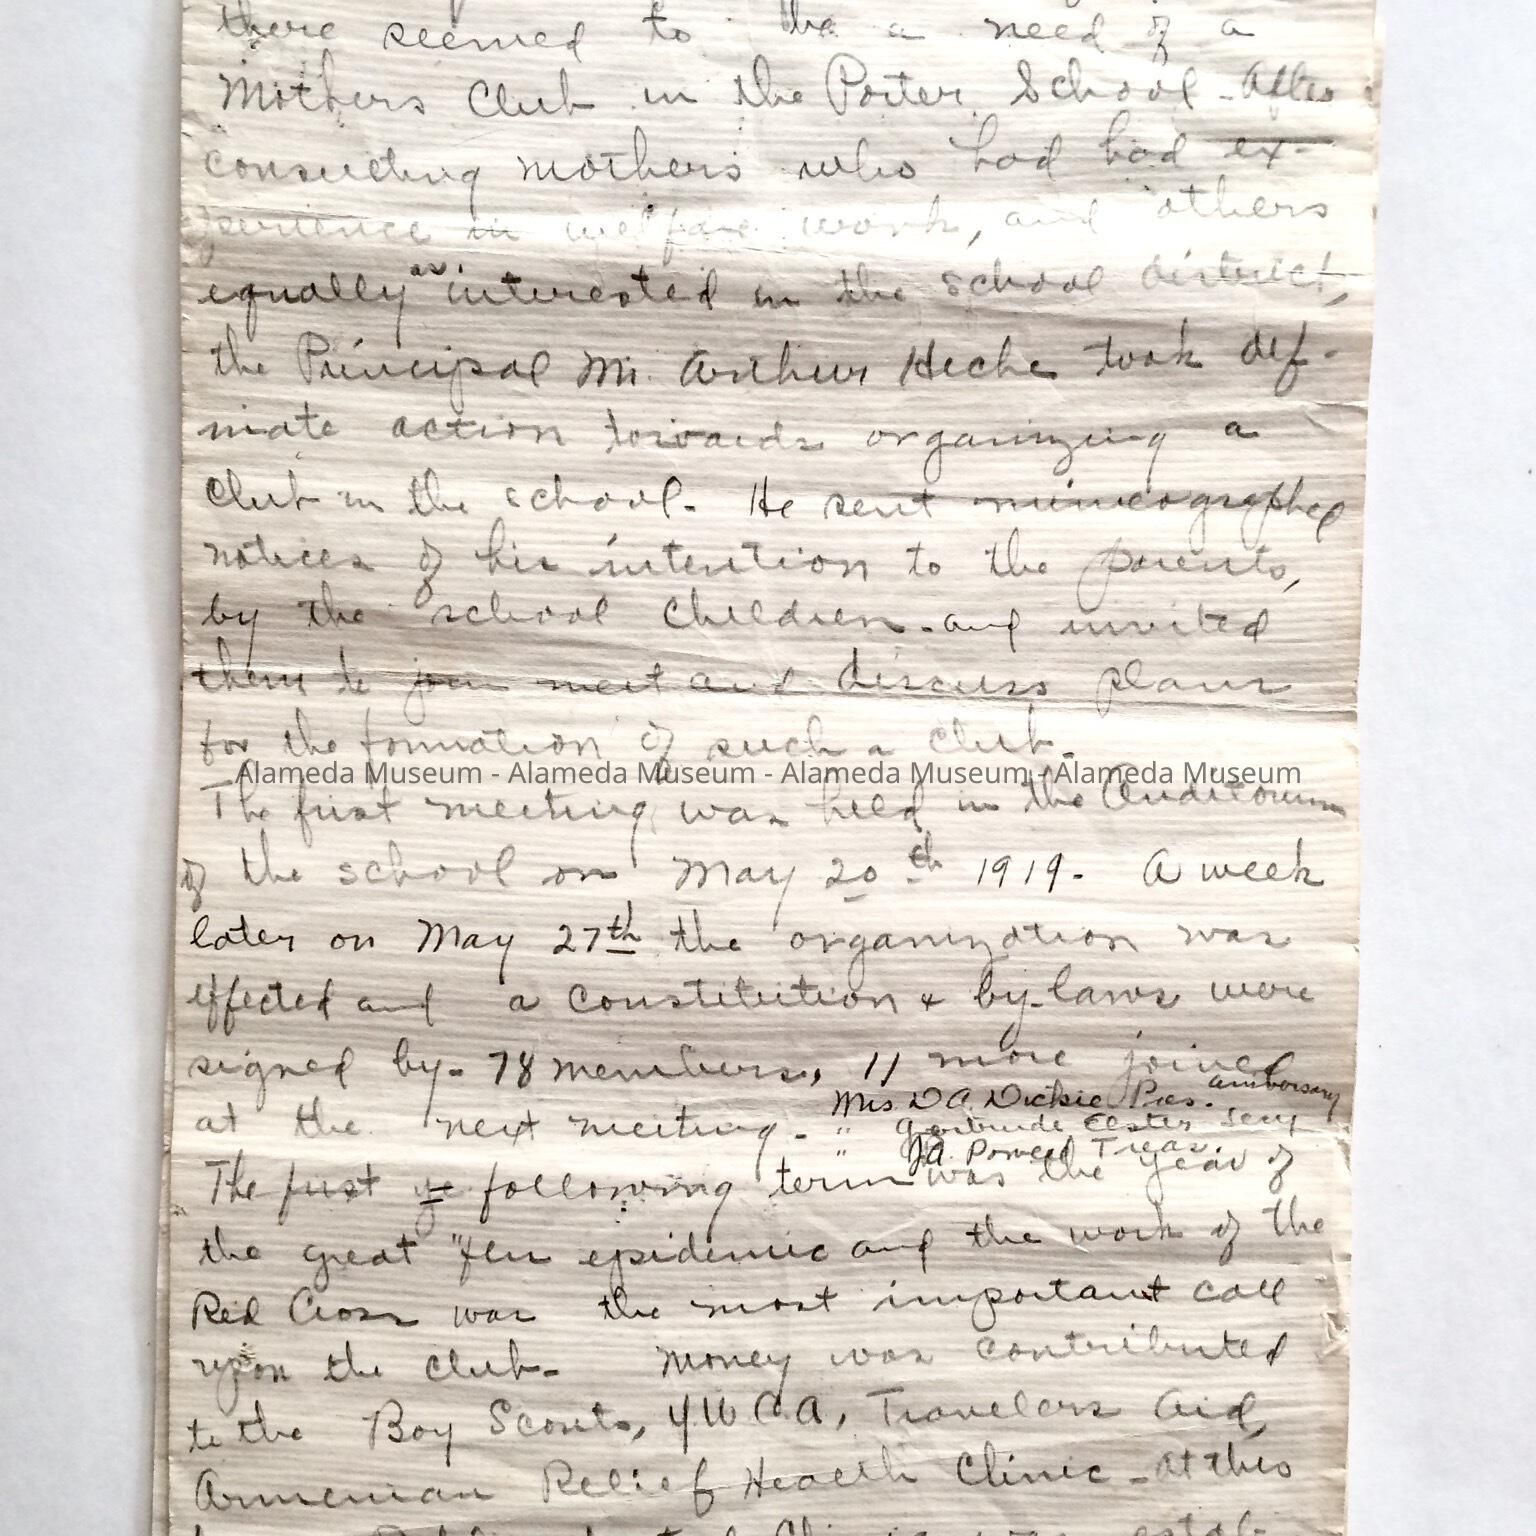 there seemed to be a need of a
Mothers Club in the Porter School - After
consulting mothers who had had ex-
perience in welfare work, and others
equally as interested in the school district,
the Principal Mr. Arthur Heche took def-
inate action towards organizing a
Club in the school. He sent mimeographed
notices of his intention to the parents,
by the school children - and invited
them to join meet and discuss plans
for the formation of such a club.
Alameda Museum - Alameda Museum - Alameda Museum - Alameda Museum
The first meeting was held in the Auditorium
of the school on May 20th 1919. A week
later on May 27th the organization was
effected and a constitution & by-laws were
signed by - 78 members, 11 more joined
anniversary
at the next meeting - Mrs D A Dickie Pres.
" Gertrude Secy
" JA Powell Treas.
The first ye following term was the year of
the great "flu epidemic and the work of the
Red Cross was the most important call
upon the club - Money was contributed
to the Boy Scouts, YWCA, Travelers Aid,
Armenian Relief Health Clinic - At this
Clinic was estab-